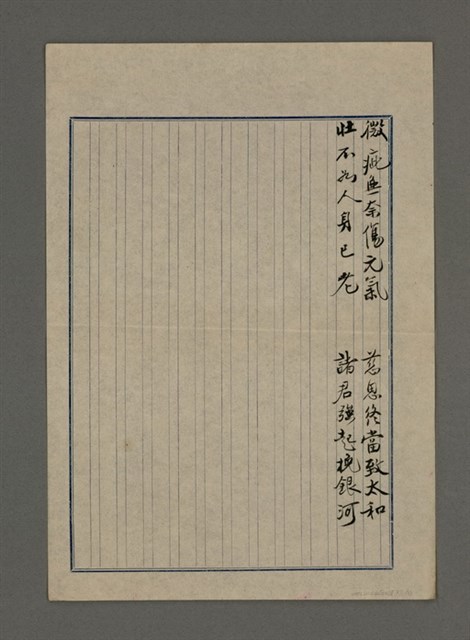 微疵無奈傷元氣 慈恩終當致太和
壯不如人身已老 諸君強起挽銀河